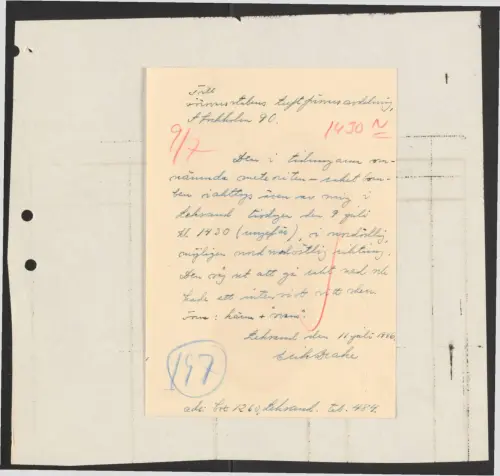 Till
Försvarsstabens Luftförsvarsavdelning,
Stockholm 90.
1430 N
9/7
Den i tidningarna om-
nämnda meteoriten - raket bom-
ben iakttogs även av mig i
Leksand tisdagen den 9 juli
kl 1430 (ungefär), i nordöstlig,
möjligen nordvästlig riktning.
Den såg ut att gå rakt ned och
hade ett utseende
Leksand den 11 juli 1946.
197
adr. box 1260, Leksand. tel. 484.